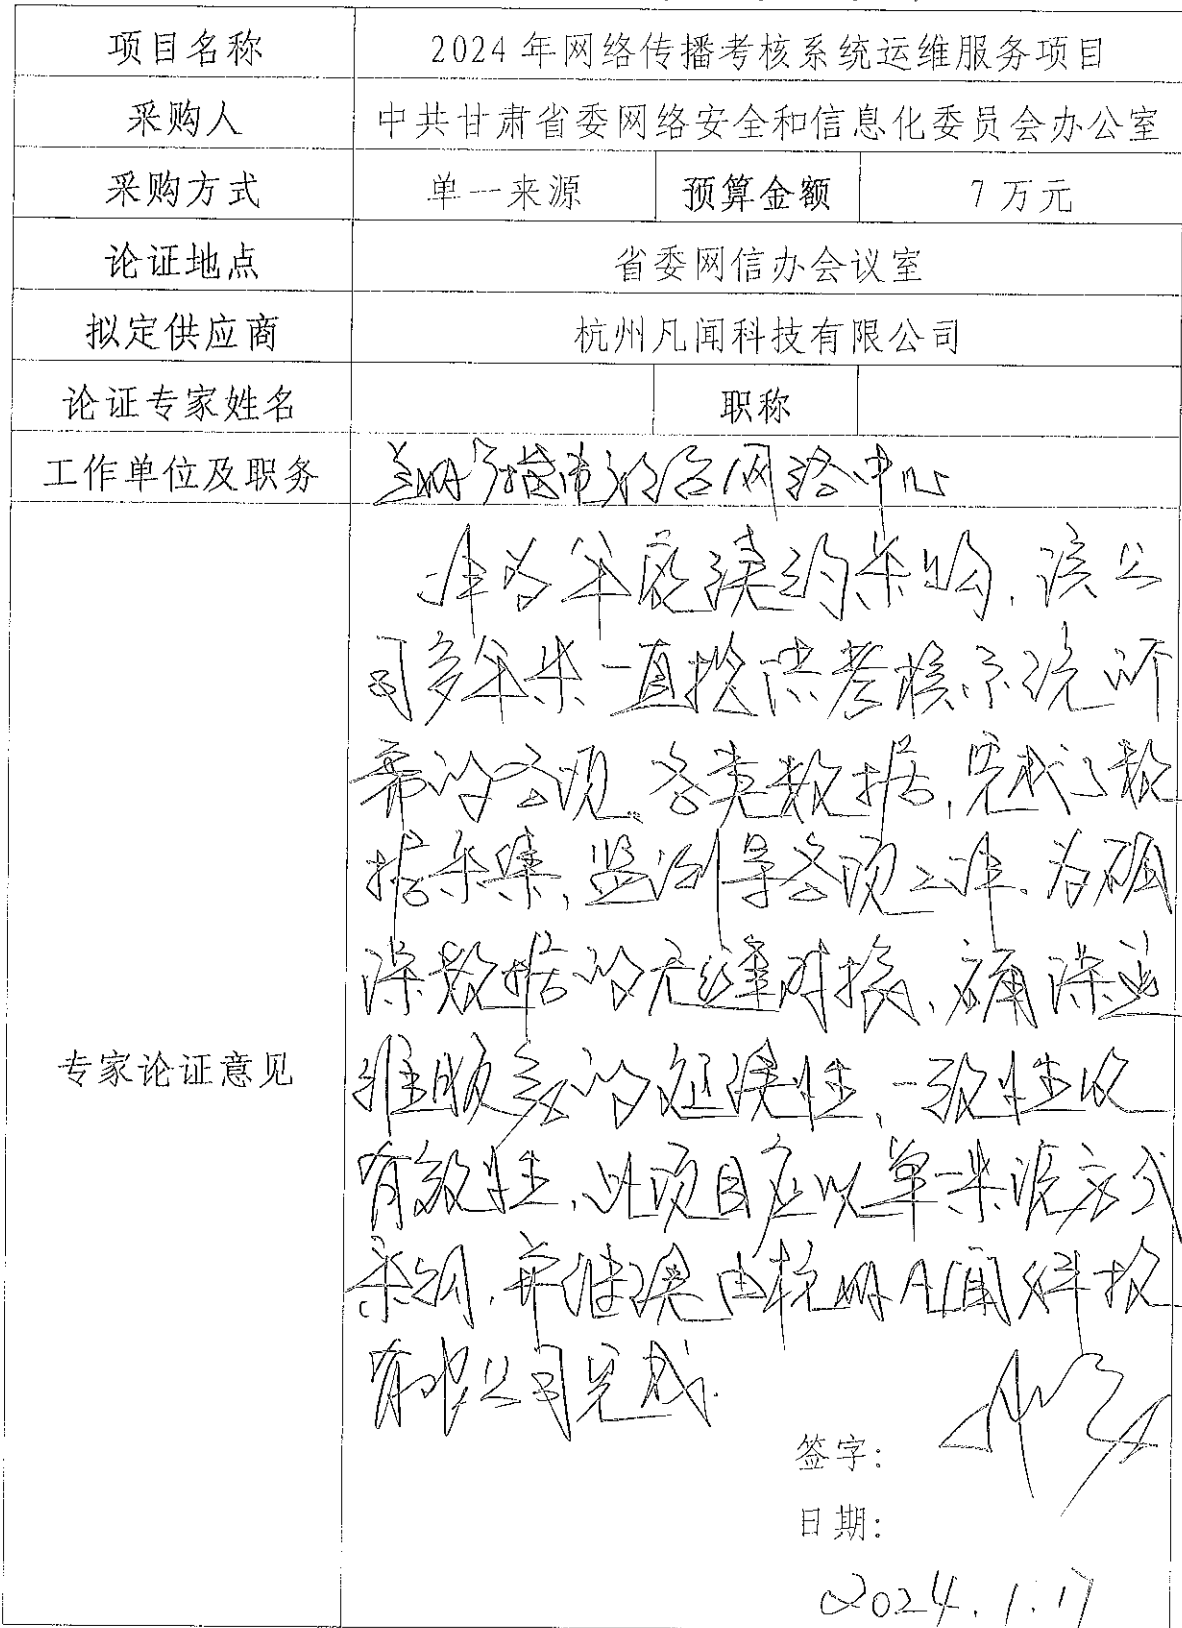 项目名称 2024年网络传播考核系统运维服务项目
采购人 中共甘肃省委网络安全和信息化委员会办公室
采购方式 单一来源 预算金额 7万元
论证地点 省委网信办会议室
拟定供应商 杭州凡闻科技有限公司
论证专家姓名 职称
工作单位及职务 兰州广播电视台网络中心
专家论证意见
作为年度续约采购，该公
司多年来一直提供考核系统所
需的各项、各类数据，完成了数
据采集，监测等各项工作。为确
保数据的无缝对接，确保运
维服务的延续性，一致性及
有效性，此项目应以单一来源方式
采购，并继续由杭州凡闻科技
有限公司完成。
签字：
日期：
2024.1.17